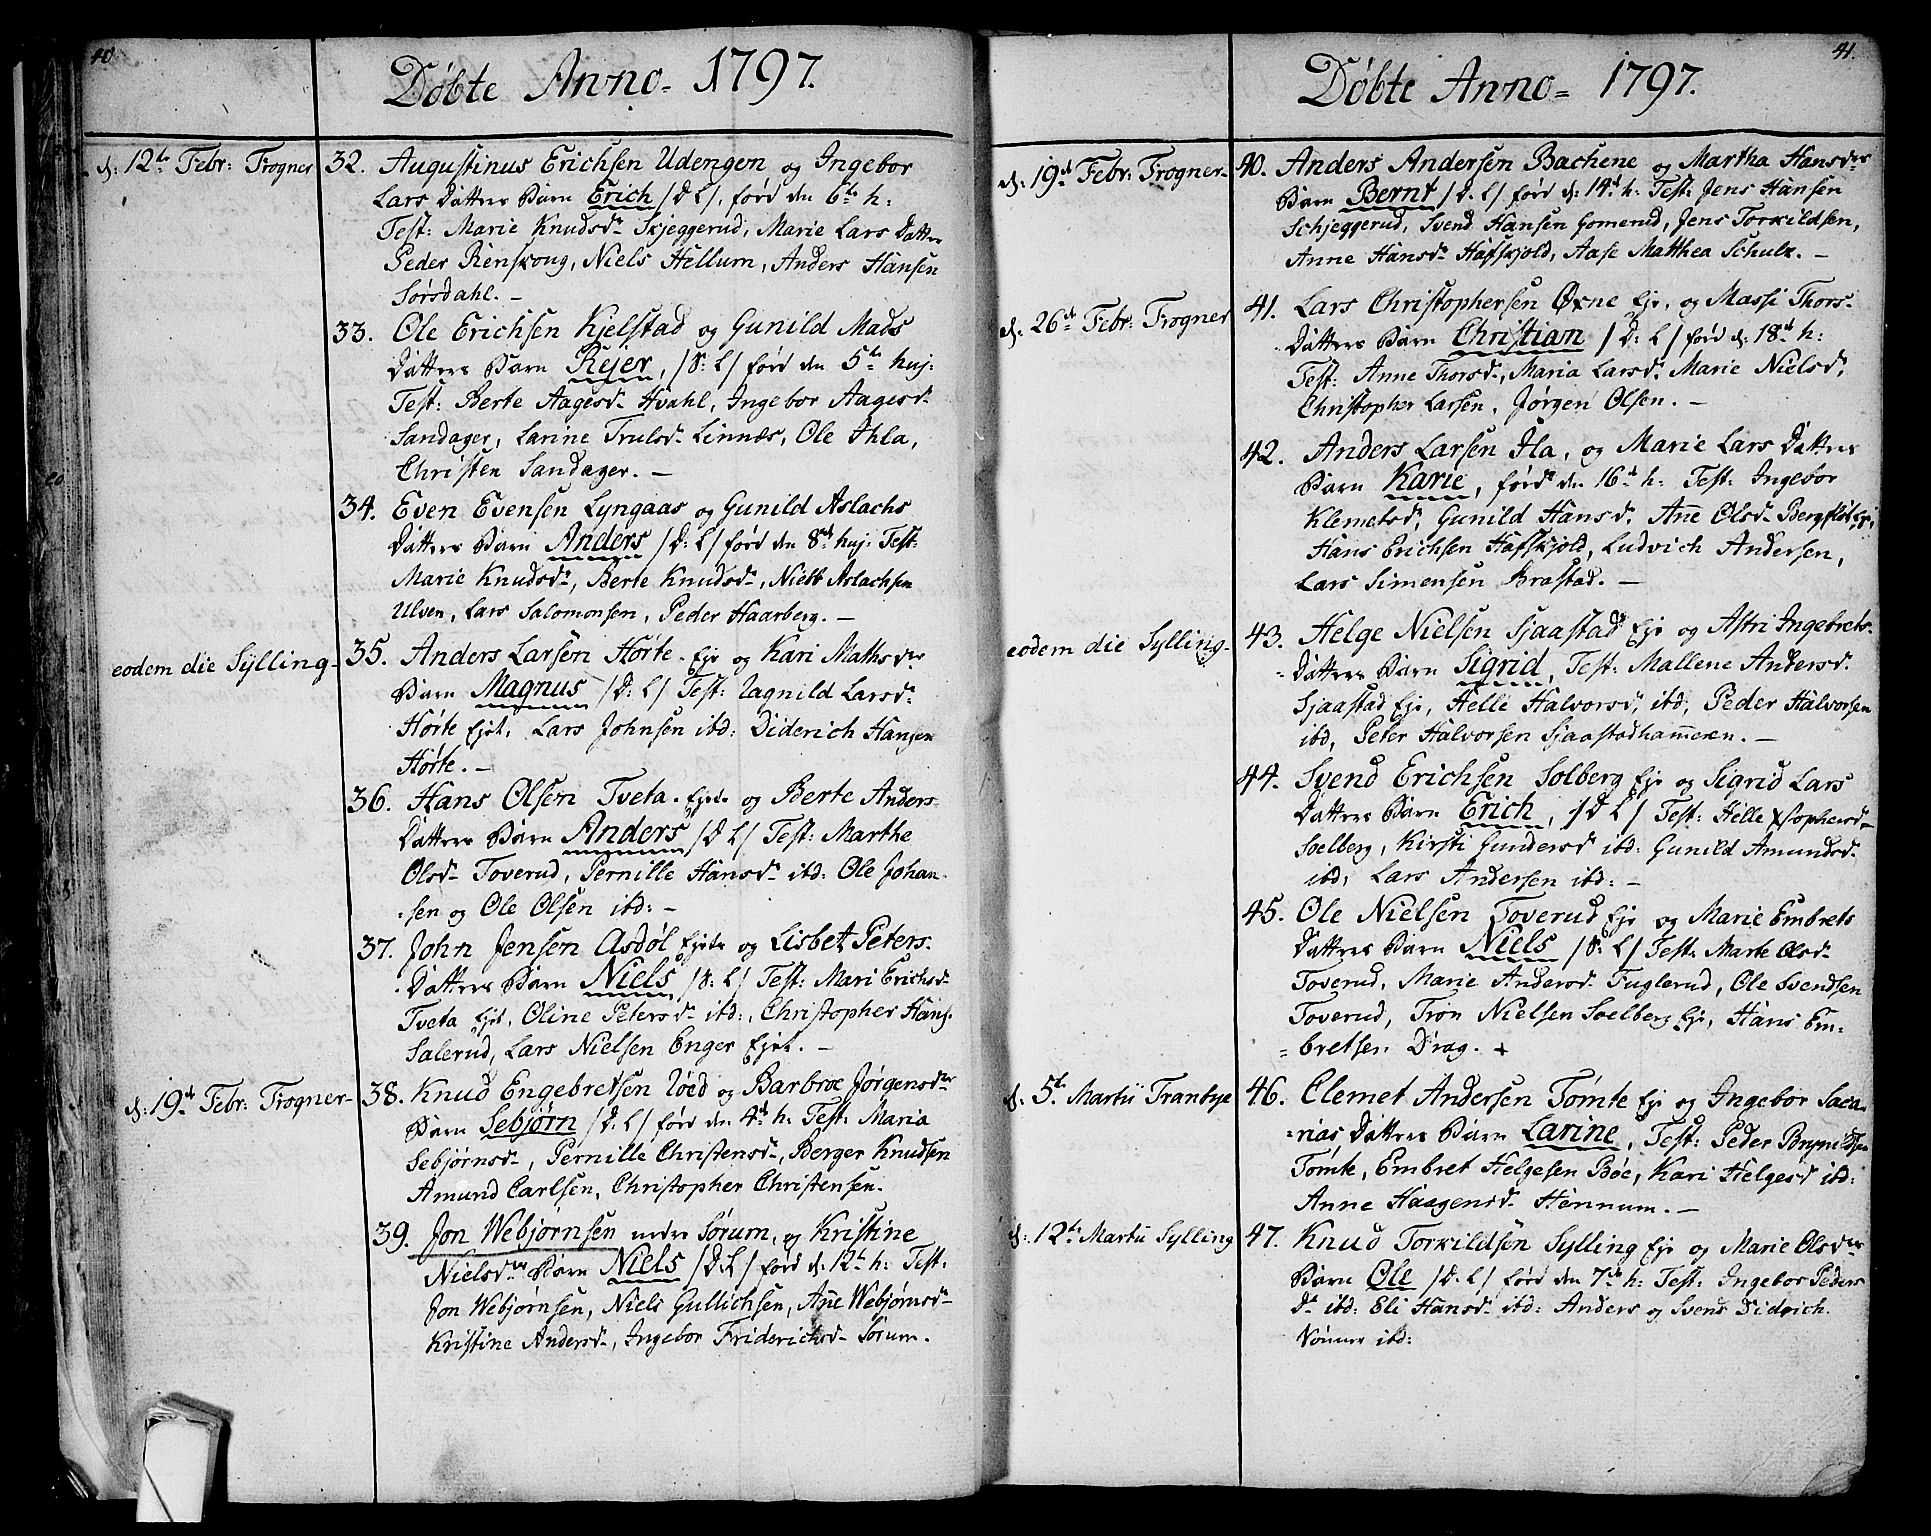 40
Döbte Anno 1797.
d: 12te Febr: Trogner
32. Augustinus Erichsen Udengen og Ingebor
Lars Datters Barn Erich /D: L/, förd den 6te h:
Test: Marie Knudsd. Skjeggerud, Marie Lars Datter
Peder Renskoug, Niels Hillum, Anders Hansen
Sörsdahl. –
33. Ole Erichsen Kjelstad og Gunild Mads
Datters Barn Rejer, /S: L/ förd den 5te huj:
Test: Berte Aagesd. Hvahl, Ingebor Aagesd.
Sandager, Larine Trulsd. Linnæs, Ole Ihla,
Christen Sandager. –
34. Even Evensen Lyngaas og Gunild Aslachs
Datters Barn Anders /D: L/ förd den 8de huj: Test:
Marie Knudsd., Berte Knudsd., Niels Aslachsen
Ulven, Lars Salomonsen, Peder Haarberg. –
eodem die Sylling
35. Anders Larsen Hörte Eje og Kari Mathsder
Barn Magnus /D: L/ Test: Ragnild Larsd.
Hörte Ejet, Lars Johnsen ibd: Diderich Hansen
Hörte. –
36. Hans Olsen Tveta Ejet og Berte Anders
Datters Barn Anders /D L/ Test: Marthe
Olsd. Toverud, Pernille Hansd. ibd: Ole Johan-
-sen og Ole Olsen ibd: –
37. John Jensen Asdöl Ejets og Lisbet Peters-
Datters Barn Niels /S: L/ Test: Mari Erichsd.
Tveta Ejet, Oline Petersd. ibd:, Christopher Hans.
Salerud, Lars Nielsen Enger Ejet. –
d: 19de Febr: Trogner
38. Knud Engebretsen Röed og Barbroe Jörgensder
Barn Sebjörn /D: L/ förd den 4de h: Test: Maria
Sebjörnsd., Pernille Christensd., Berger Knudsen
Amund Carlsen, Christopher Christensen.
39. Jon Webjörnsen nedre Sörum, og Kristine
Nielsder Barn Niels /D: L/ förd d: 12te h: Test:
Jon Webjörnsen, Niels Gullichsen, Añe Webjörnsd.
Kristine Andersd., Ingebor Friderichsd. Sörum.
41.
Döbte Anno 1797.
d: 19de Febr: Trogner
40. Anders Andersen Bachene og Martha Hansder
Barn Bernt /D. L/ förd d: 14de h: Test: Jens Hansen
Schjeggerud, Svend Hansen Gomerud, Jens Torkildsen,
Anne Hansd. Hafskjold, Aase Matthea Schulz. –
d: 26de Febr: Trogner
41. Lars Christophersen Öxne Eje, og Massi Thors-
Datters Barn Christian /D: L/ förd d: 18de h:
Test: Anne Thorsd., Maria Larsd. Marie Nielsd.
Christopher Larsen, Jörgen Olsen. –
42. Anders Larsen Ila, og Marie Lars Datters
Barn Karie, förd den 16de h: Test: Ingebor
Klemetsd. Gunild Hansd. Añe Olsd. Bergflöt Eje,
Hans Erichsen Hafskjold, Ludvich Andersen,
Lars Simensen Brastad. –
eodem die Sylling
43. Helge Nielsen Sjaastad Eje og Astri Ingebrets-
Datters Barn Sigrid, Test: Mallene Andersd.
Sjaastad Eje, Helle Halvorsd. ibd, Peder Halvorsen
ibd, Peter Halvorsen Sjaastadham̃eren. –
44. Svend Erichsen Solberg Eje og Sigrid Lars
Datters Barn Erich, /D L/ Test: Helle Xstophersd.
Soelberg, Kirsti Gundersd ibd: Gunild Amundsd.
ibd, Lars Andersen ibd: –
45. Ole Nielsen Toverud Eje og Marie Embrets
Datters Barn Niels /S: L/ Test: Marte Olsd.
Toverud, Marie Andersd. Fuglerud, Ole Svendsen
Toverud, Tron Nielsen Soelberg Eje, Hans Em-
-bretsen Drag.
d. 5te Martii Tranbye
46. Clemet Andersen Tömte Eje og Ingebor Saca-
-rias Datters Barn Larine, Test: Peder Brynildsen
Tömte, Embret Helgesen Böe, Kari Helgesd ibd:
Anne Haagensd. Hennum. –
d: 12te Martii Sylling
47. Knud Torkildsen Sylling Eje og Marie Olsder
Barn Ole /D: L/ förd den 7de h: Test: Ingebor Peders
D. ibd: Eli Hansd. ibd: Anders og Svend Didrich
ibd: